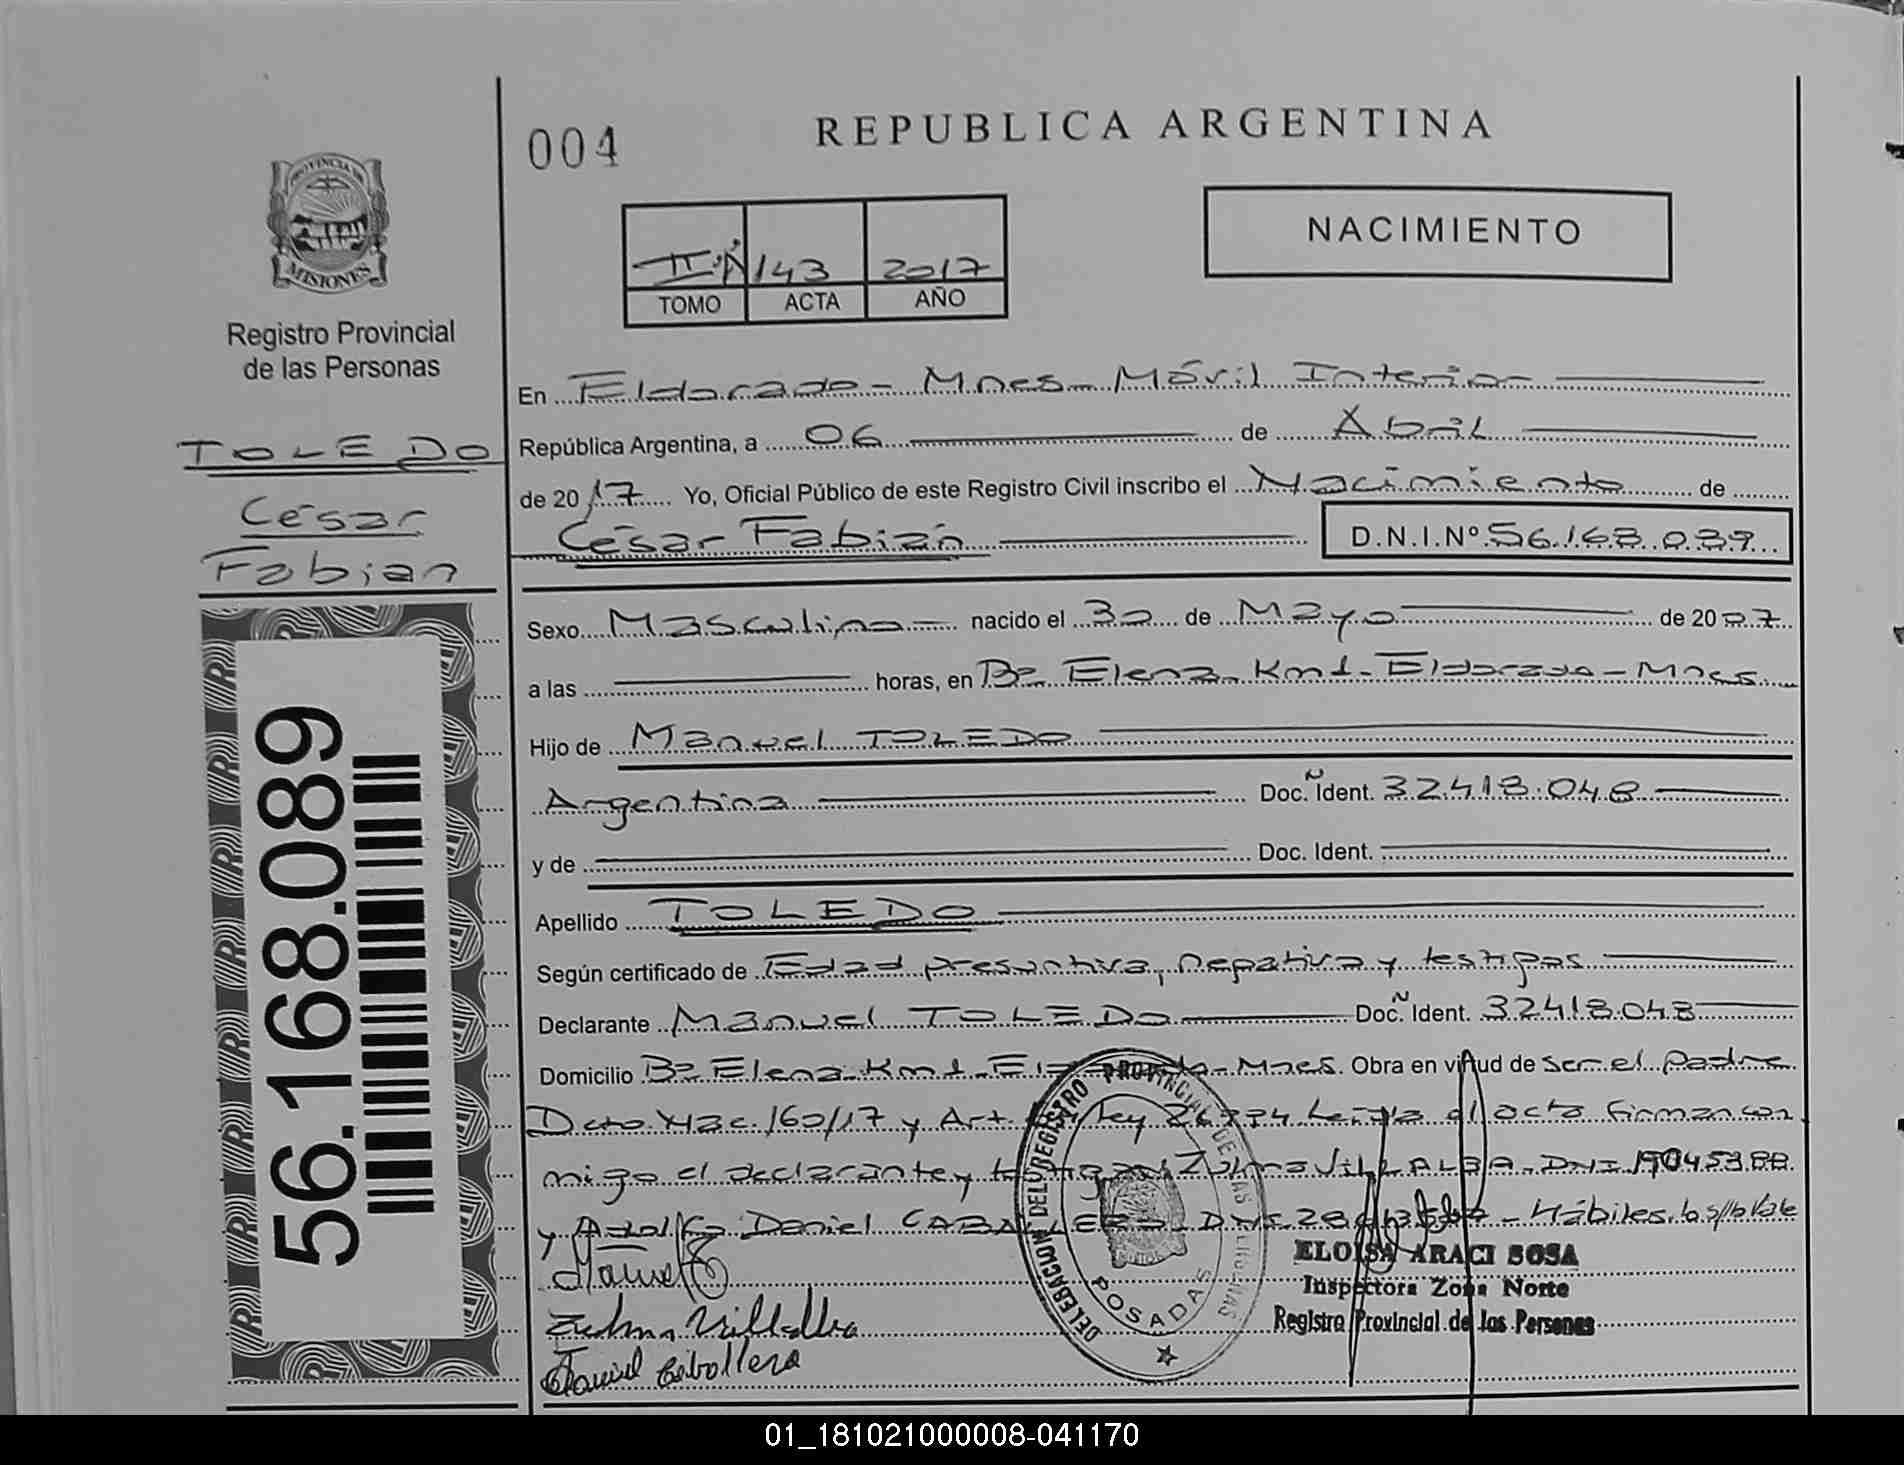 004
REPUBLICA ARGENTINA
PROVINCIA DE
MISIONES
NACIMIENTO
143 2017
TOMO ACTA AÑO
Registro Provincial
de las Personas
En Eldorado - Mnes. Móvil Interior
República Argentina, a 06 de Abril
TOLEDO
César
Fabian
de 2017 Yo, Oficial Público de este Registro Civil inscribo el Nacimiento de
César Fabián D.N.I.Nº 56.168.089
Sexo Masculino nacido el 30 de Mayo de 2007
a las horas, en Bº Elena Km 1 - Eldorado - Mnes.
Hijo de Manuel TOLEDO
Argentina Doc. Ident. 32.418.048
y de Doc. Ident.
Apellido TOLEDO
Según certificado de Edad presuntiva, negativa y testigos
Declarante Manuel TOLEDO Doc. Ident. 32.418.048
Domicilio Bº Elena Km 1 - Mnes. Obra en virtud de ser el padre
Dcto Nac. 160/17 y Art. Ley el acta firman con
migo el declarante y VILLALBA DNI
y Daniel CABALLERO - Hábiles
56.168.089
Manuel
Zulma Villalba
Daniel Caballero
DELEGACION DEL REGISTRO PROVINCIAL DE LAS PERSONAS
POSADAS
ELOISA ARACI SOSA
Inspectora Zona Norte
Registro Provincial de las Personas
01_181021000008-041170